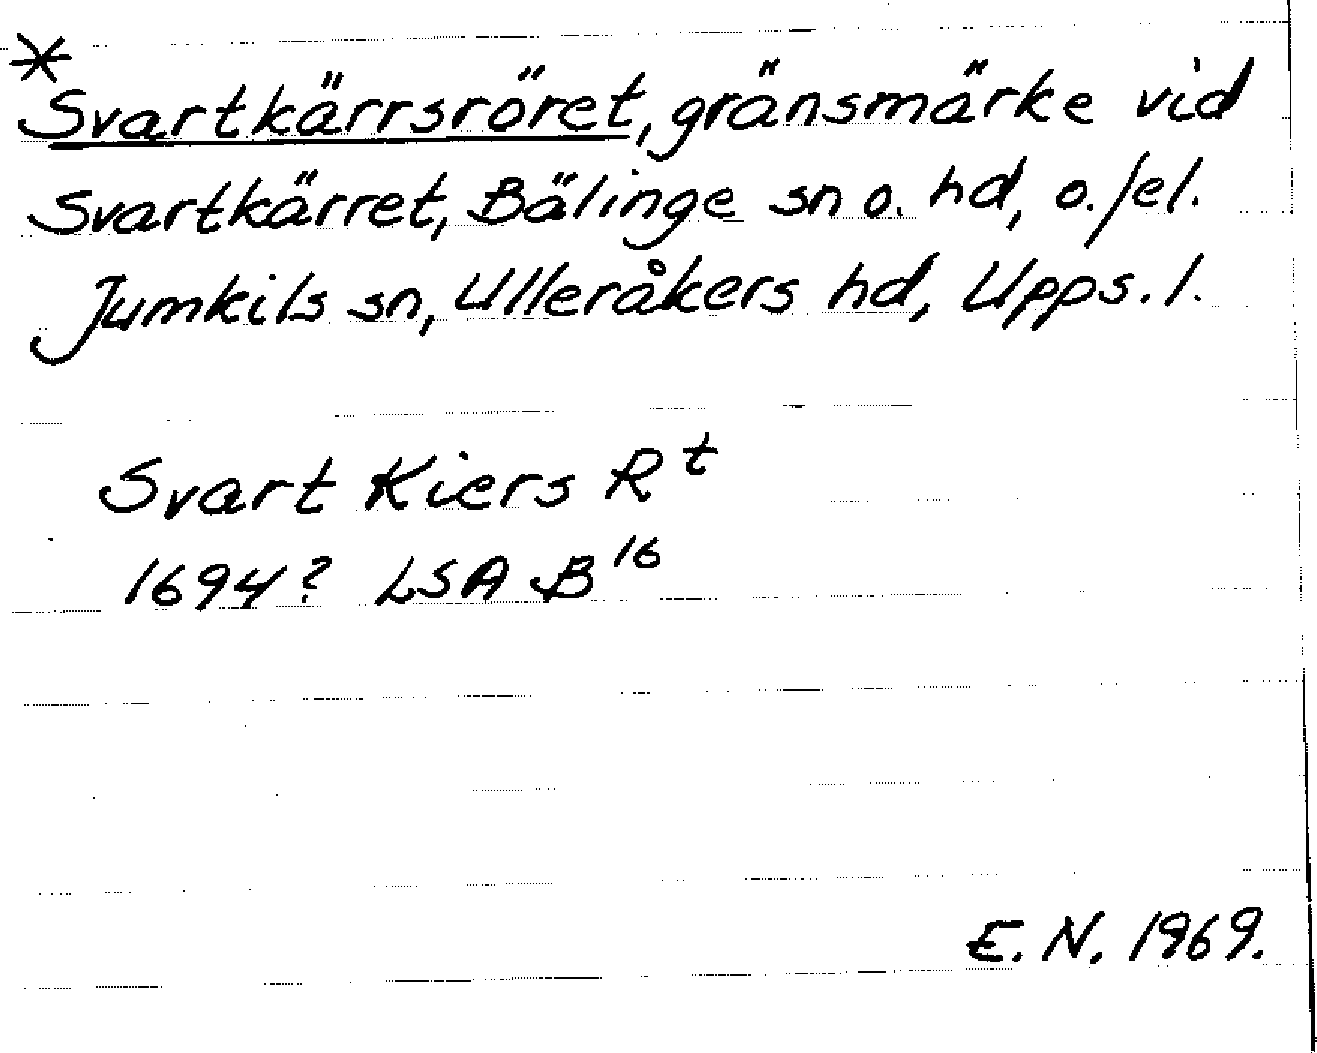 *
Svartkärrsröret, gränsmärke vid
Svartkärret, Bälinge sn o. hd, o./el.
Jumkils sn, Ulleråkers hd, Upps. l.
Svart Kiers Rt
1694? LSA B16
E. N. 1969.